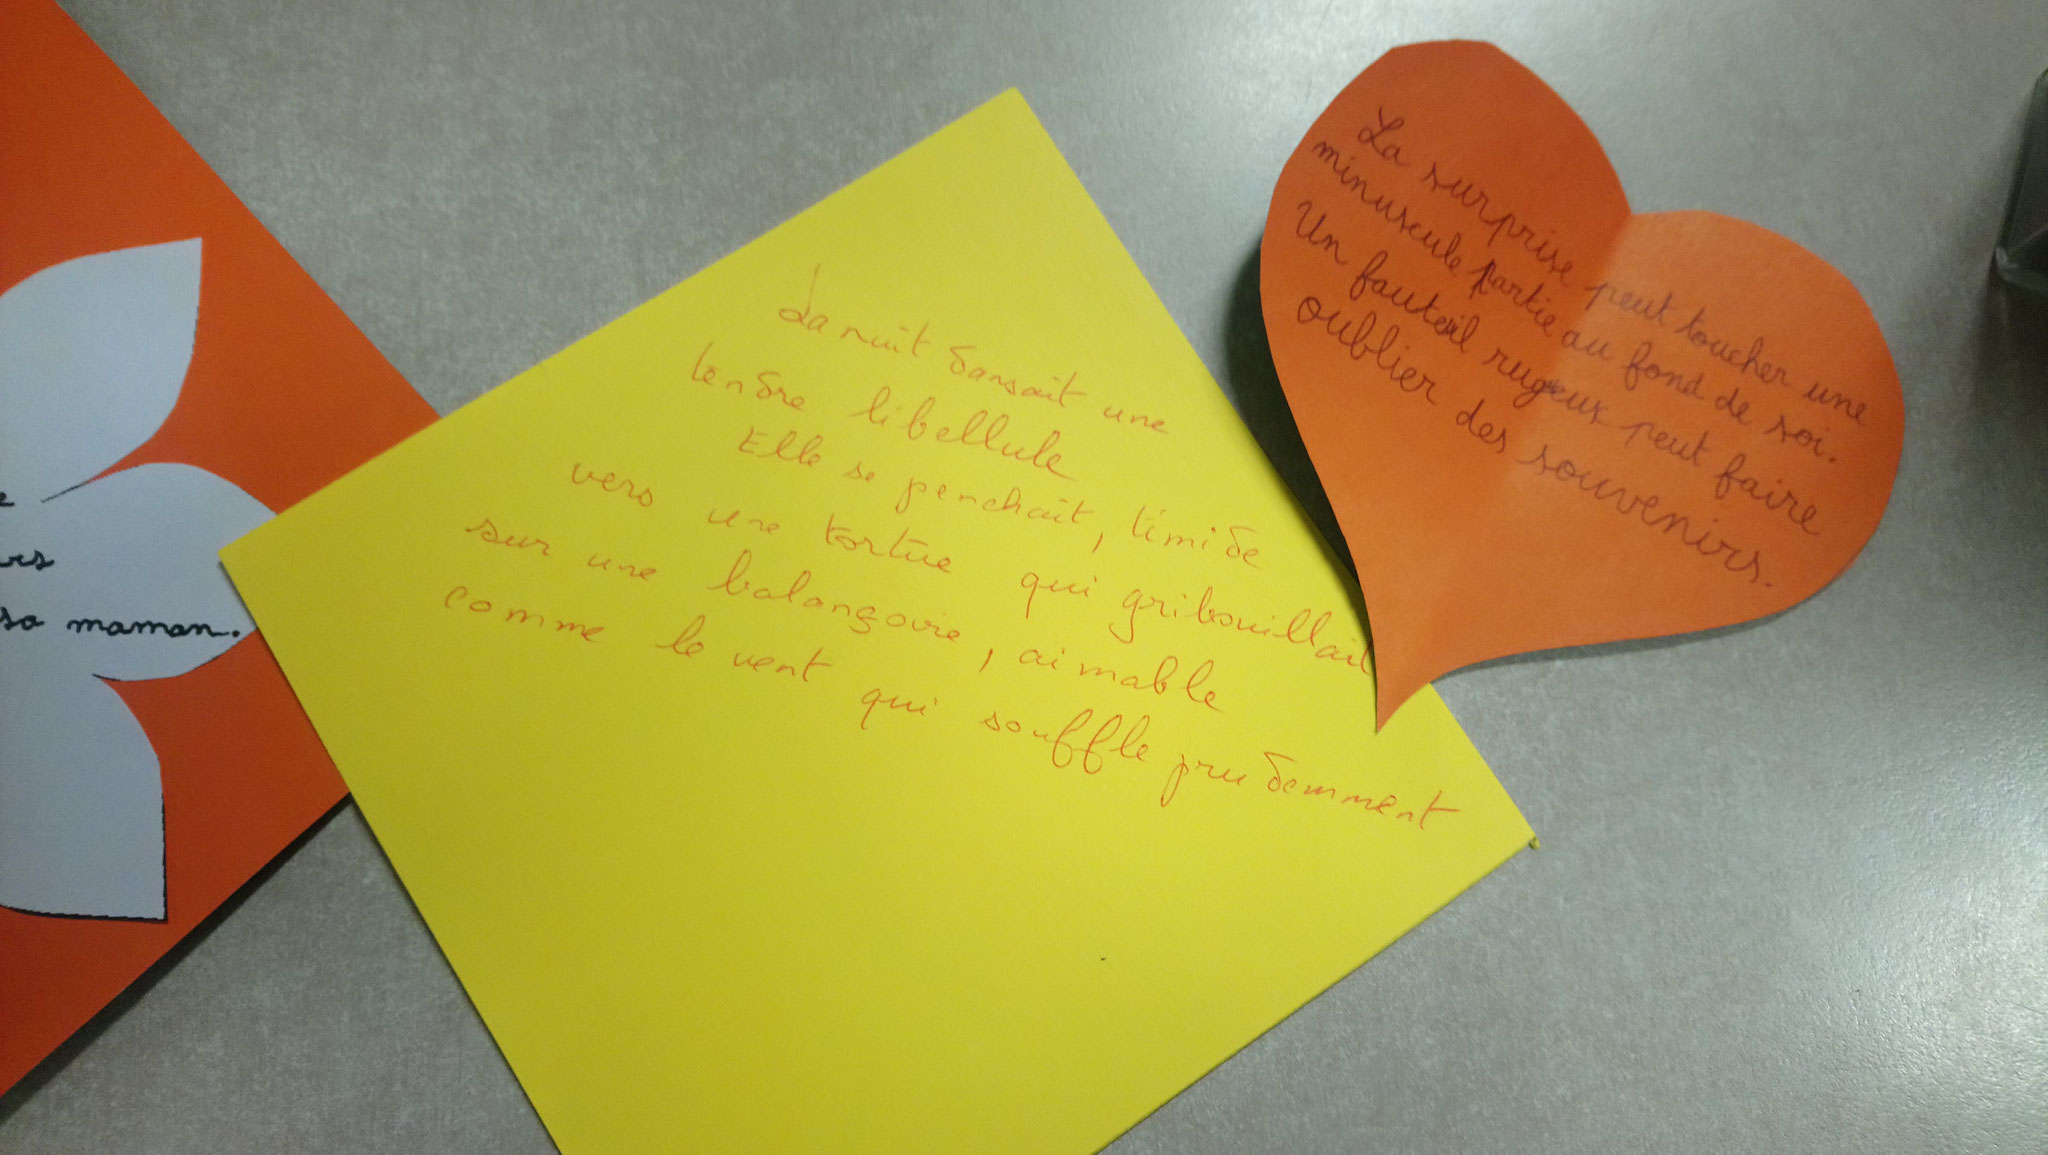 rs
sa maman.
La nuit dansait une
tendre libellule
Elle se penchait, timide
vers une tortue qui gribouillait
sur une balançoire, aimable
comme le vent qui souffle prudemment
La surprise peut toucher une
minuscule partie au fond de soi.
Un fauteuil rugueux peut faire
oublier des souvenirs.